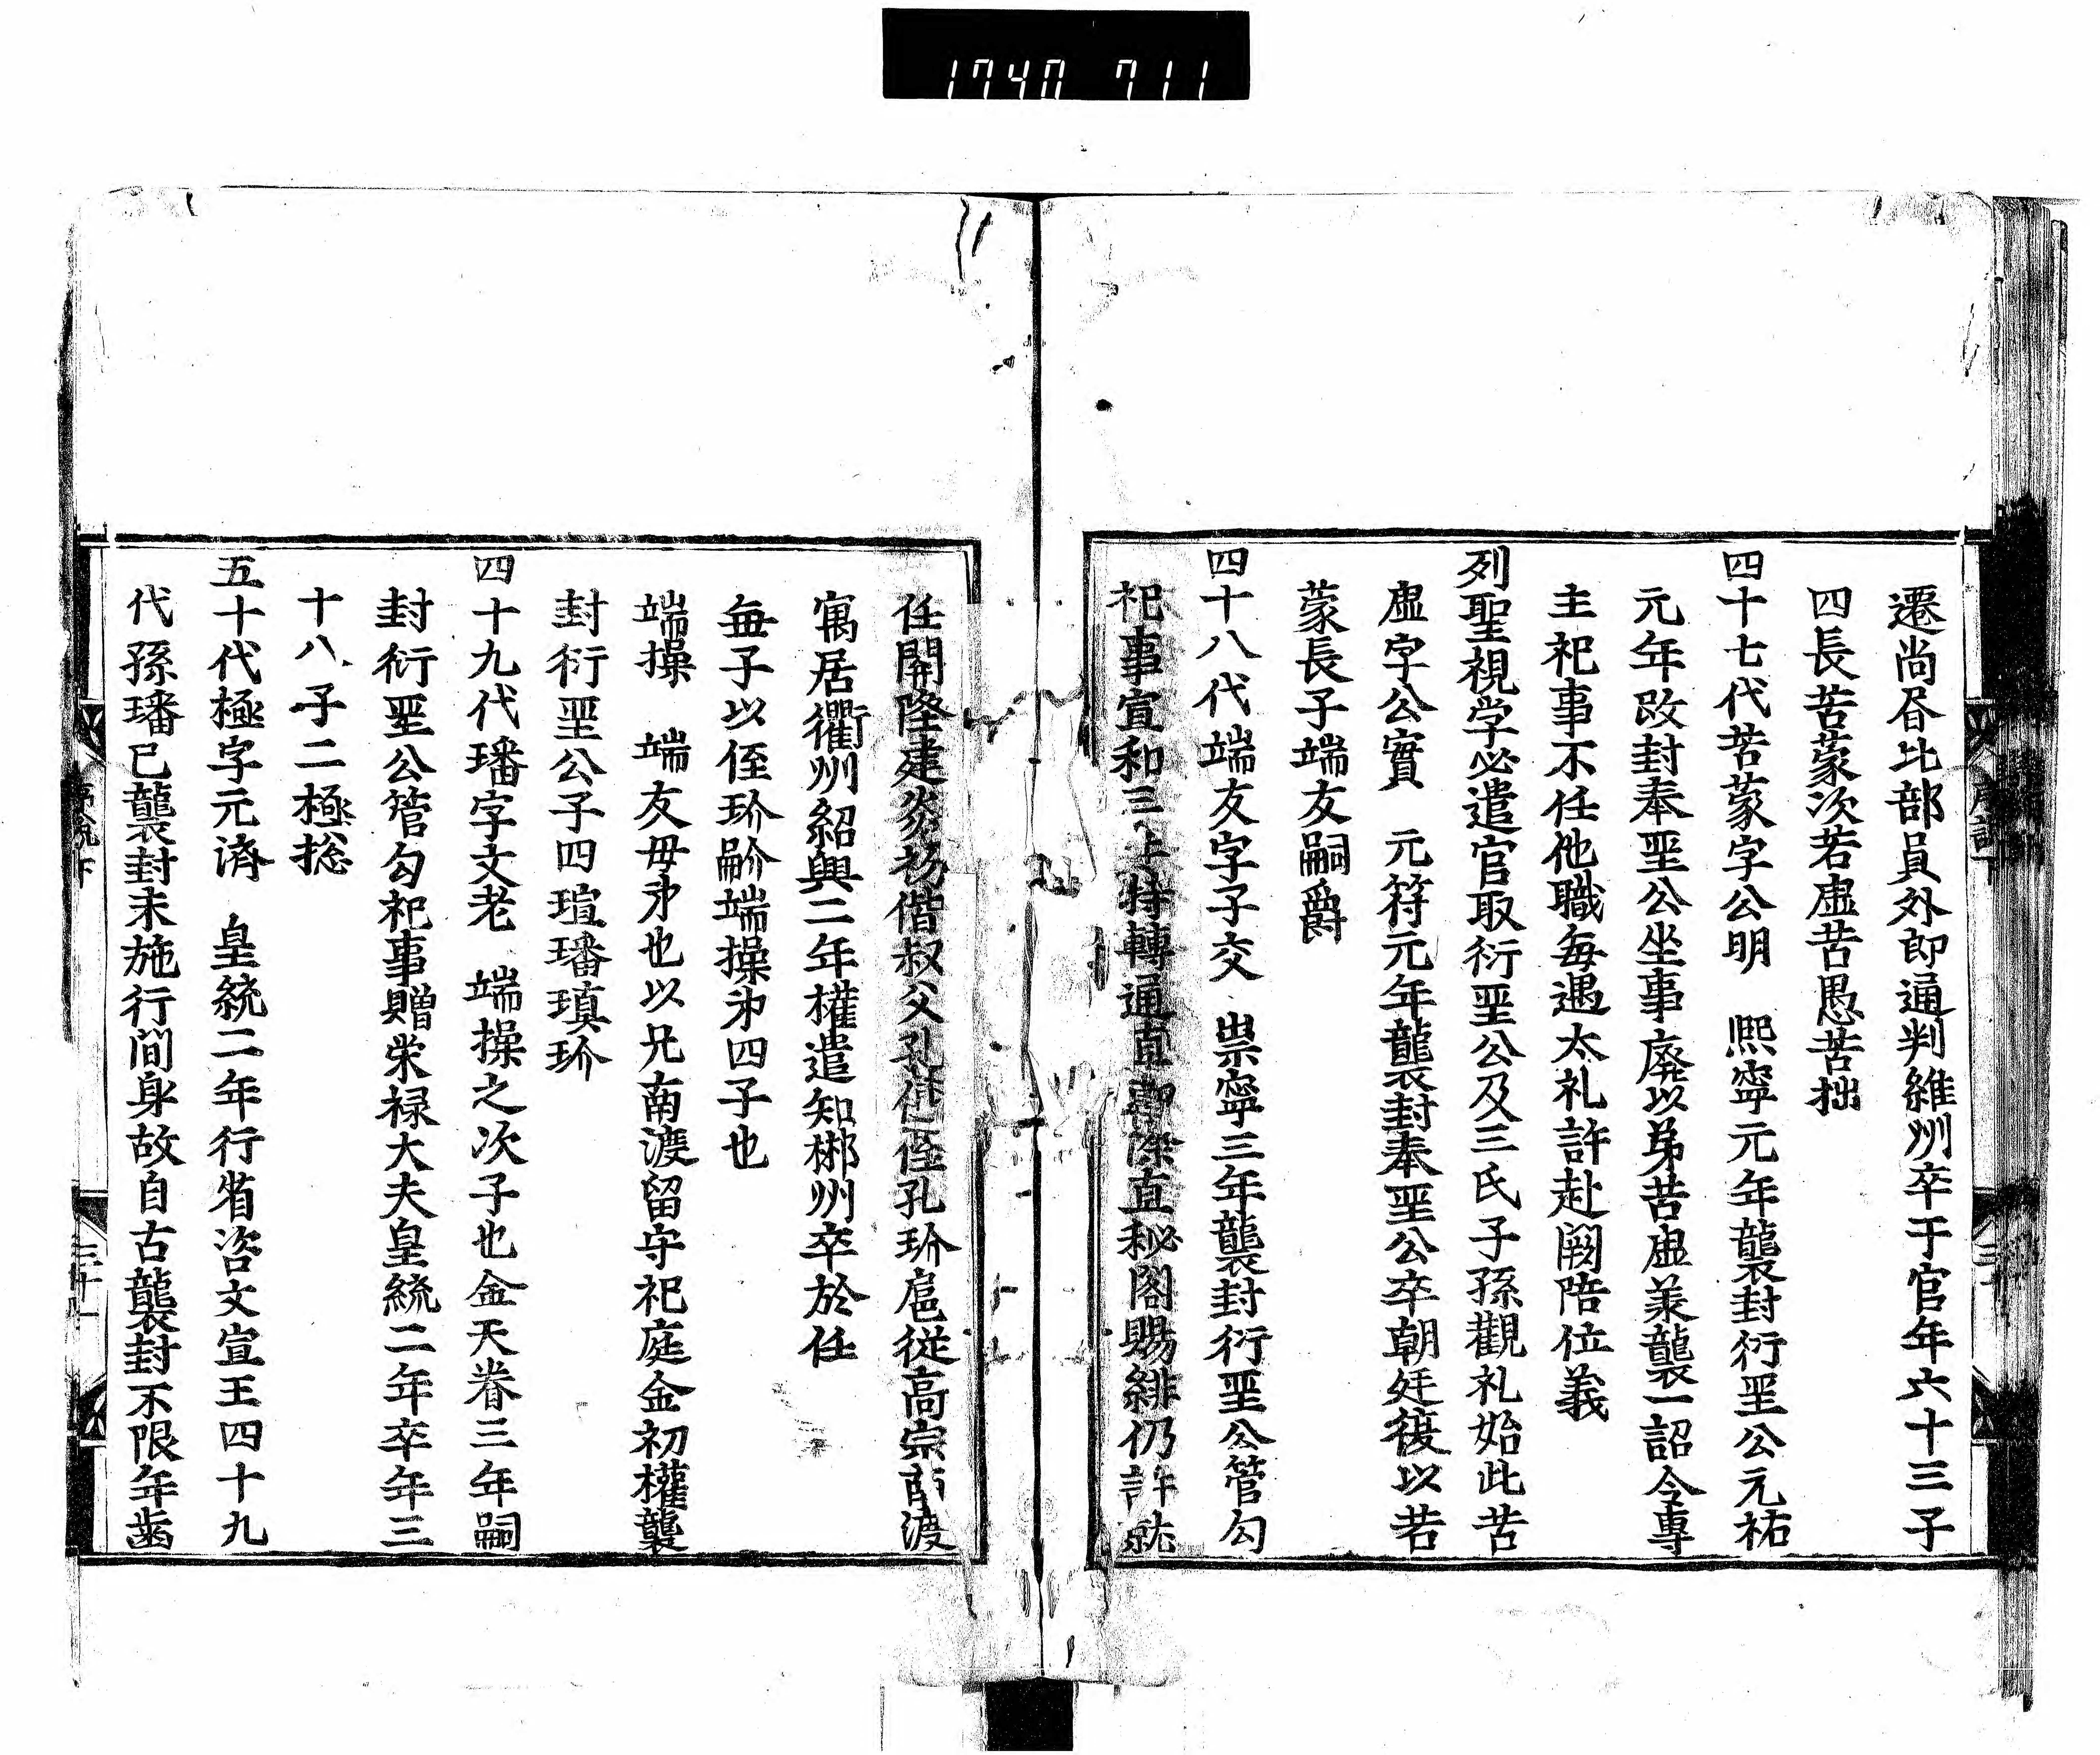 1740 711
遷尚昬比部員外郎通判維州卒于官年六十三子
四長苦蒙次若虛苦愚苦拙
四十七代苦蒙字公明 熙寧元年襲封衍聖公元祐
元年改封奉聖公坐事廢以弟苦虛羕襲一詔令專
主祀事不任他職每遇太礼許赴闕陪位義
列聖視学必遣官取衍聖公及三氏子孫觀礼始此苦
虛字公實 元符元年襲封奉聖公卒朝廷復以若
蒙長子端友嗣爵
四十八代端友字子交 崇寧三年襲封衍聖公管勾
祀事宣和三 特轉通直郎除直秘閣賜緋仍許就
任開隆建炎初偕叔父孔傳侄孔玠扈從高宗南渡
寓居衢州紹興二年權遣知郴州卒於任
每子以侄玠嗣端操㐧四子也
端操 端友母㐧也以兄南渡留守祀庭金初權襲
封衍聖公子四瑄璠瑱玠
四十九代璠字文老 端操之次子也金天眷三年嗣
封衍聖公管勾祀事贈栄禄大夫皇統二年卒年三
十八子二極捴
五十代極字元濟 皇統二年行省咨文宣王四十九
代孫璠已襲封未施行間身故自古襲封不限年歯
三十一